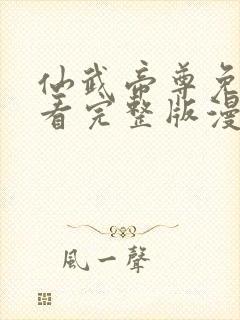 仙武帝尊免
看完整版漫
風一聲